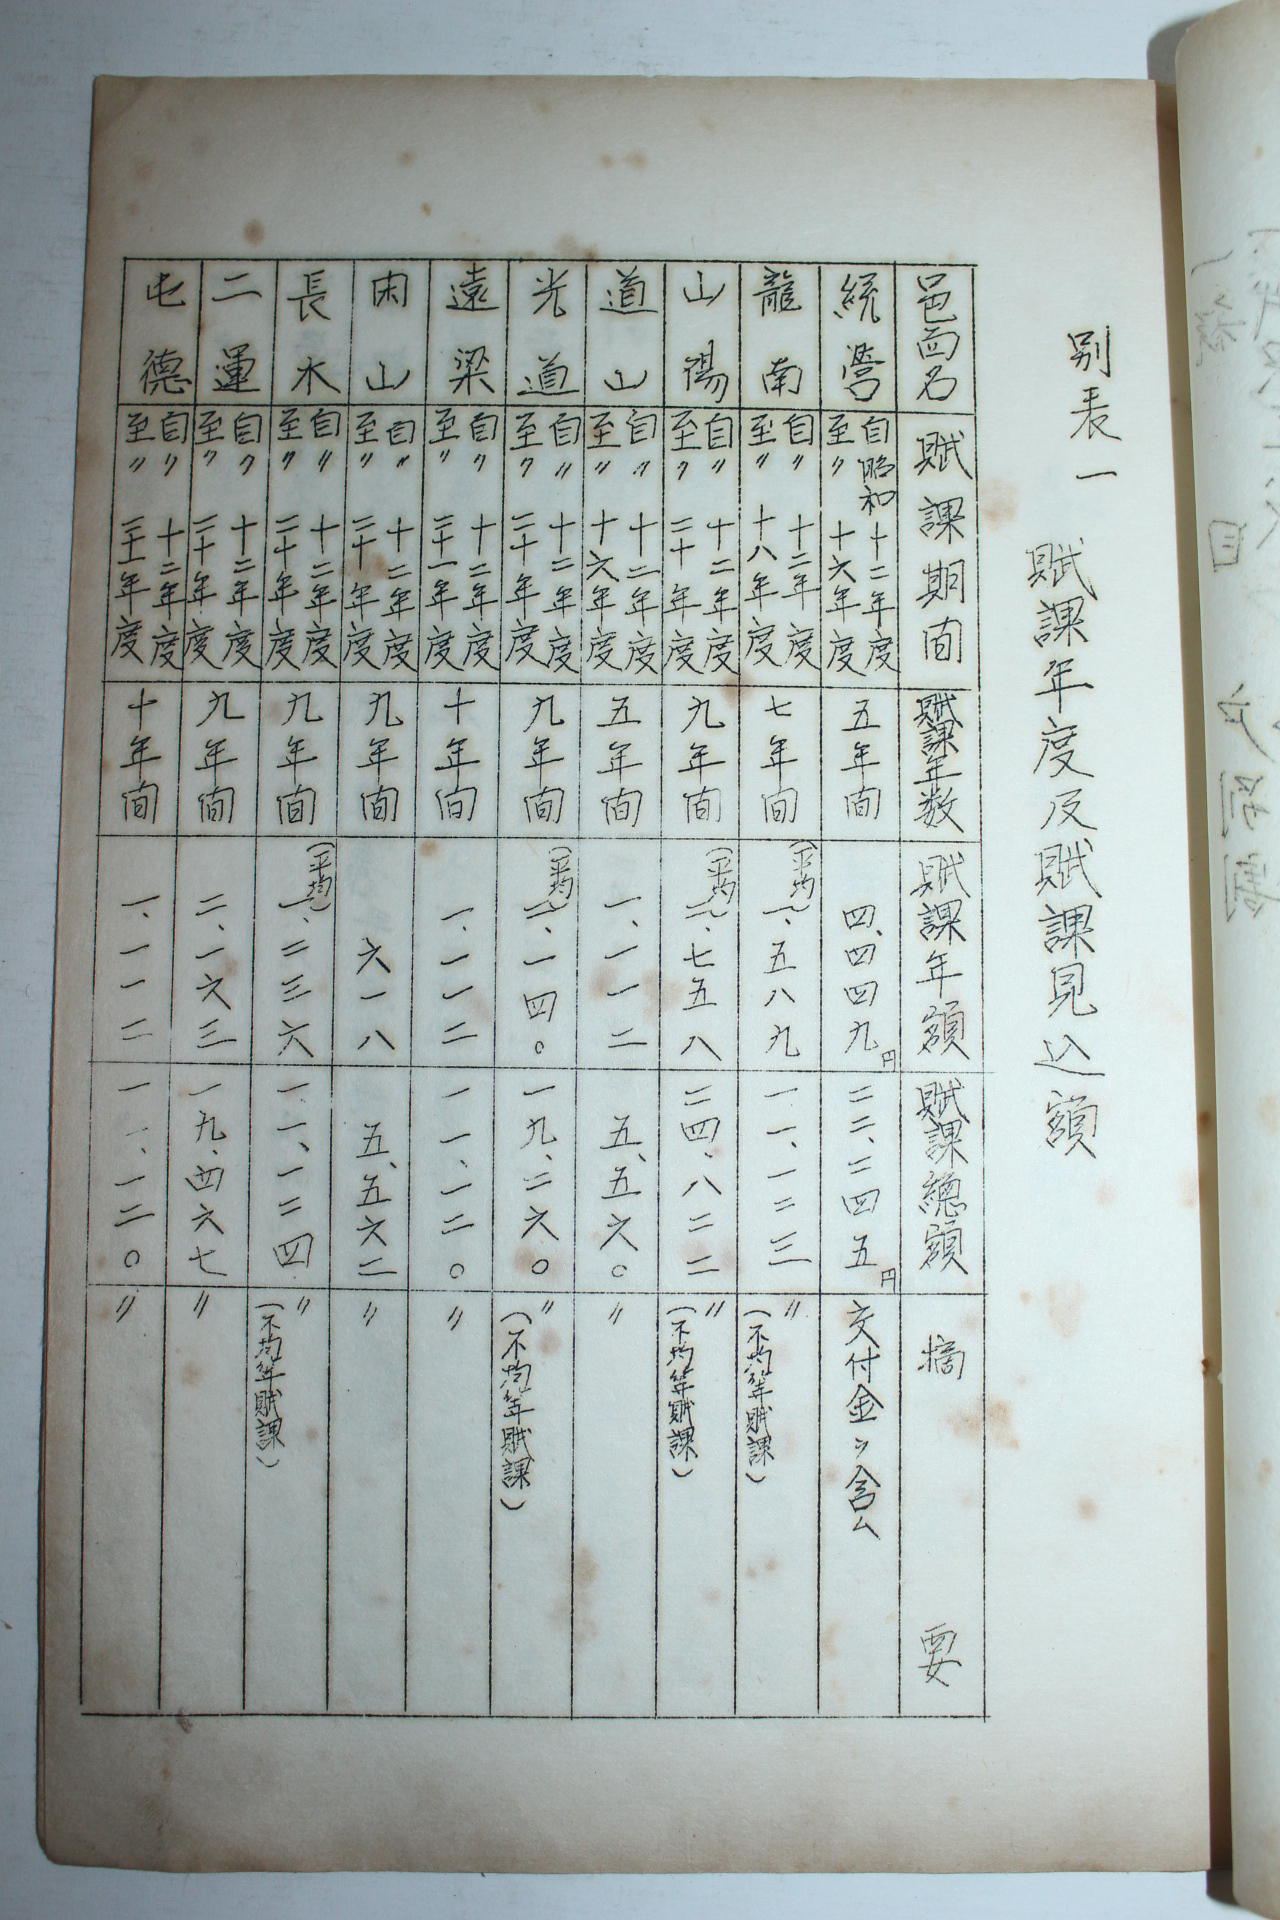 別表一
賦課年度及賦課見込額
邑面名 賦課期間 賦課年数 賦課年額 賦課總額 摘要
統営 自昭和十二年度 至〃十六年度 五年間 四、四四九円 二二、二四五円 交付金ヲ含ム
龍南 自〃十二年度 至〃十八年度 七年間 (平均)一、五八九 一一、一二三 〃(不均等賦課)
山陽 自〃十二年度 至〃二十年度 九年間 (平均)二、七五八 二四、八二二 〃(不均等賦課)
道山 自〃十二年度 至〃十六年度 五年間 一、一一二 五、五六〇 〃
光道 自〃十二年度 至〃二十年度 九年間 (平均)二、一四〇 一九、二六〇 〃(不均等賦課)
遠梁 自〃十二年度 至〃二十一年度 十年間 一、一一二 一一、一二〇 〃
閑山 自〃十二年度 至〃二十年度 九年間 六一八 五、五六二 〃
長木 自〃十二年度 至〃二十年度 九年間 (平均)一、二三六 一一、一二四 〃(不均等賦課)
二運 自〃十二年度 至〃二十年度 九年間 二、一六三 一九、四六七 〃
屯徳 自〃十二年度 至〃二十一年度 十年間 一、一一二 一一、一二〇 〃